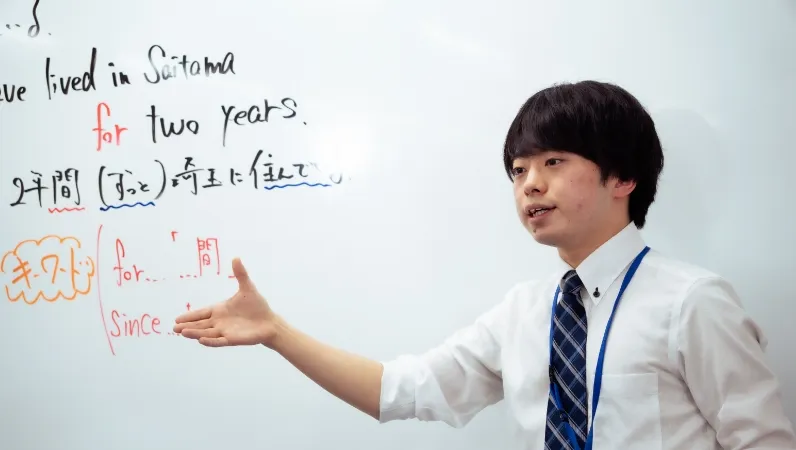 lived in Saitama
for two years.
2年間 (ずっと) 埼玉に住んで
キーワード
for... ...「間
since...